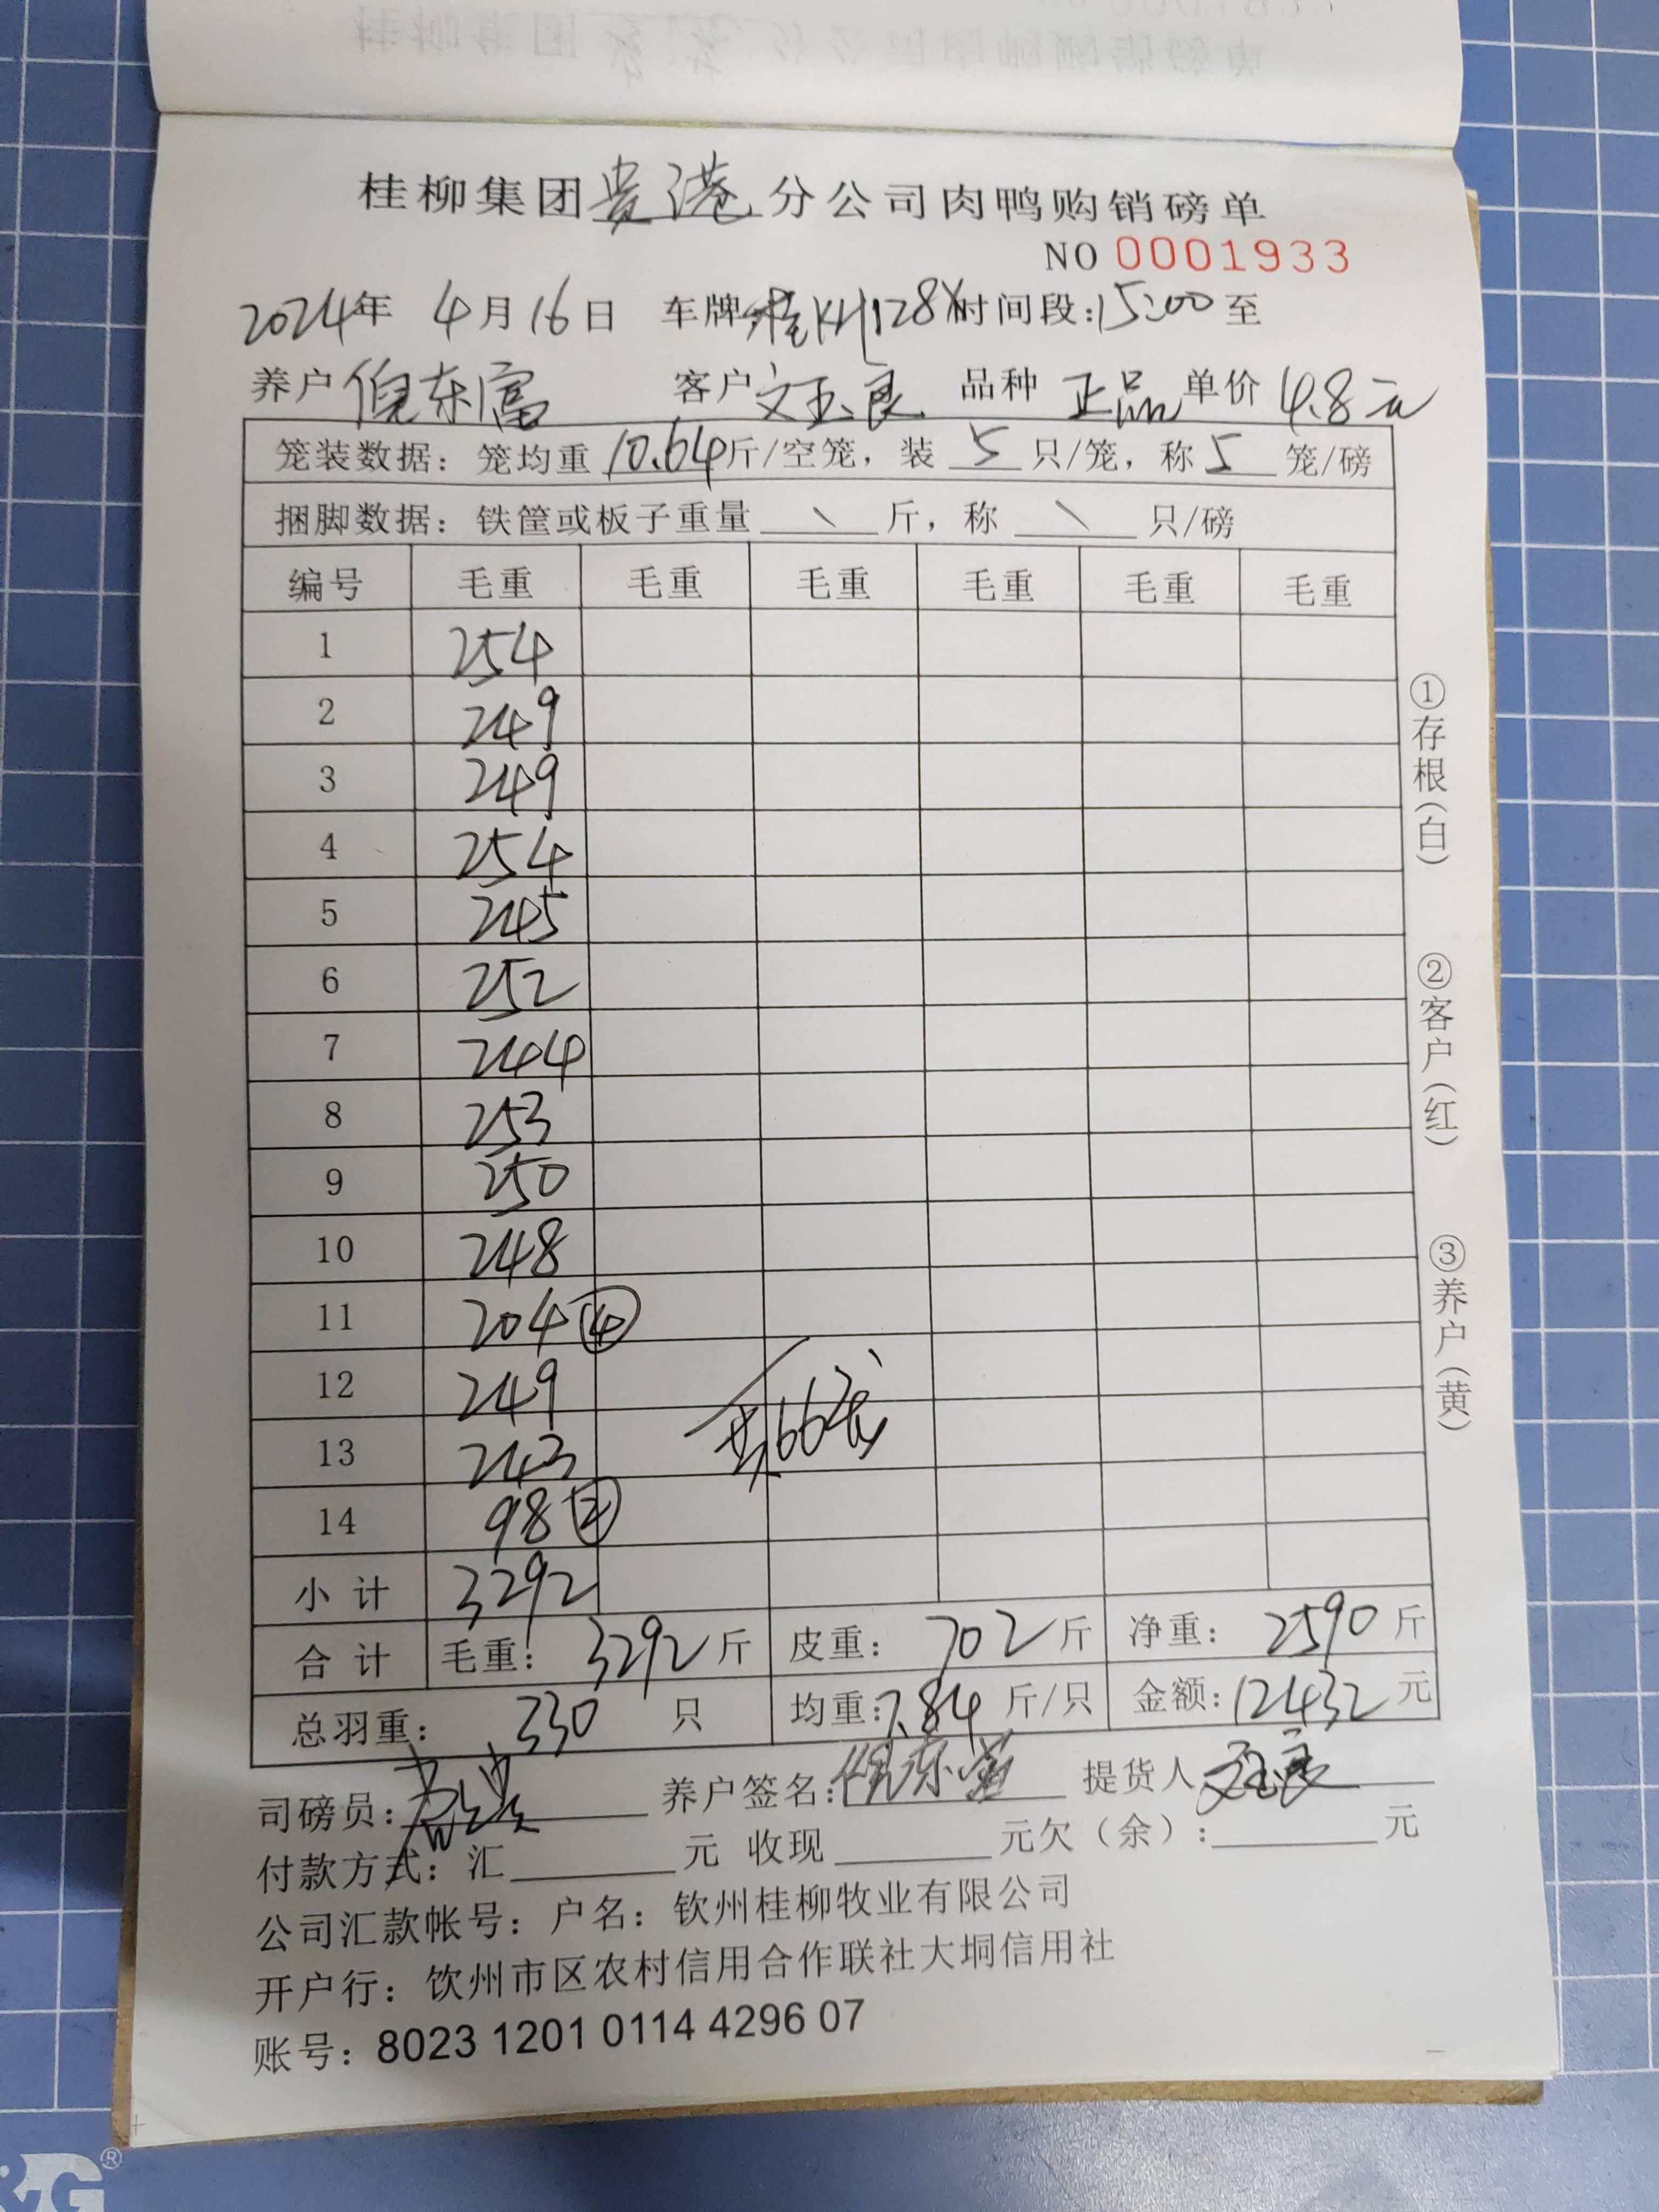 桂柳集团贵港分公司肉鸭购销磅单
NO 0001933
2024年 4月16日 车牌桂KH128X时间段:15:00至
养户倪东富 客户文玉良 品种 正品 单价 4.8元
笼装数据：笼均重 10.64斤/空笼，装 5 只/笼，称 5 笼/磅
捆脚数据：铁筐或板子重量 \ 斤，称 \ 只/磅
编号 毛重 毛重 毛重 毛重 毛重 毛重
1 254
2 249
3 249
4 254
5 245
6 252
7 244
8 253
9 250
10 248
11 204 ④
12 249
共66笼
13 243
14 98 ②
小计 3292
合计 毛重：3292斤 皮重：702斤 净重：2590斤
总羽重：330 只 均重:7.84 斤/只 金额:12432元
司磅员: 养户签名:倪东富 提货人文玉良
付款方式：汇 元 收现 元欠（余）: 元
公司汇款帐号：户名：钦州桂柳牧业有限公司
开户行：钦州市区农村信用合作联社大垌信用社
账号：8023 1201 0114 4296 07
①存根(白)
②客户(红)
③养户(黄)
&G®